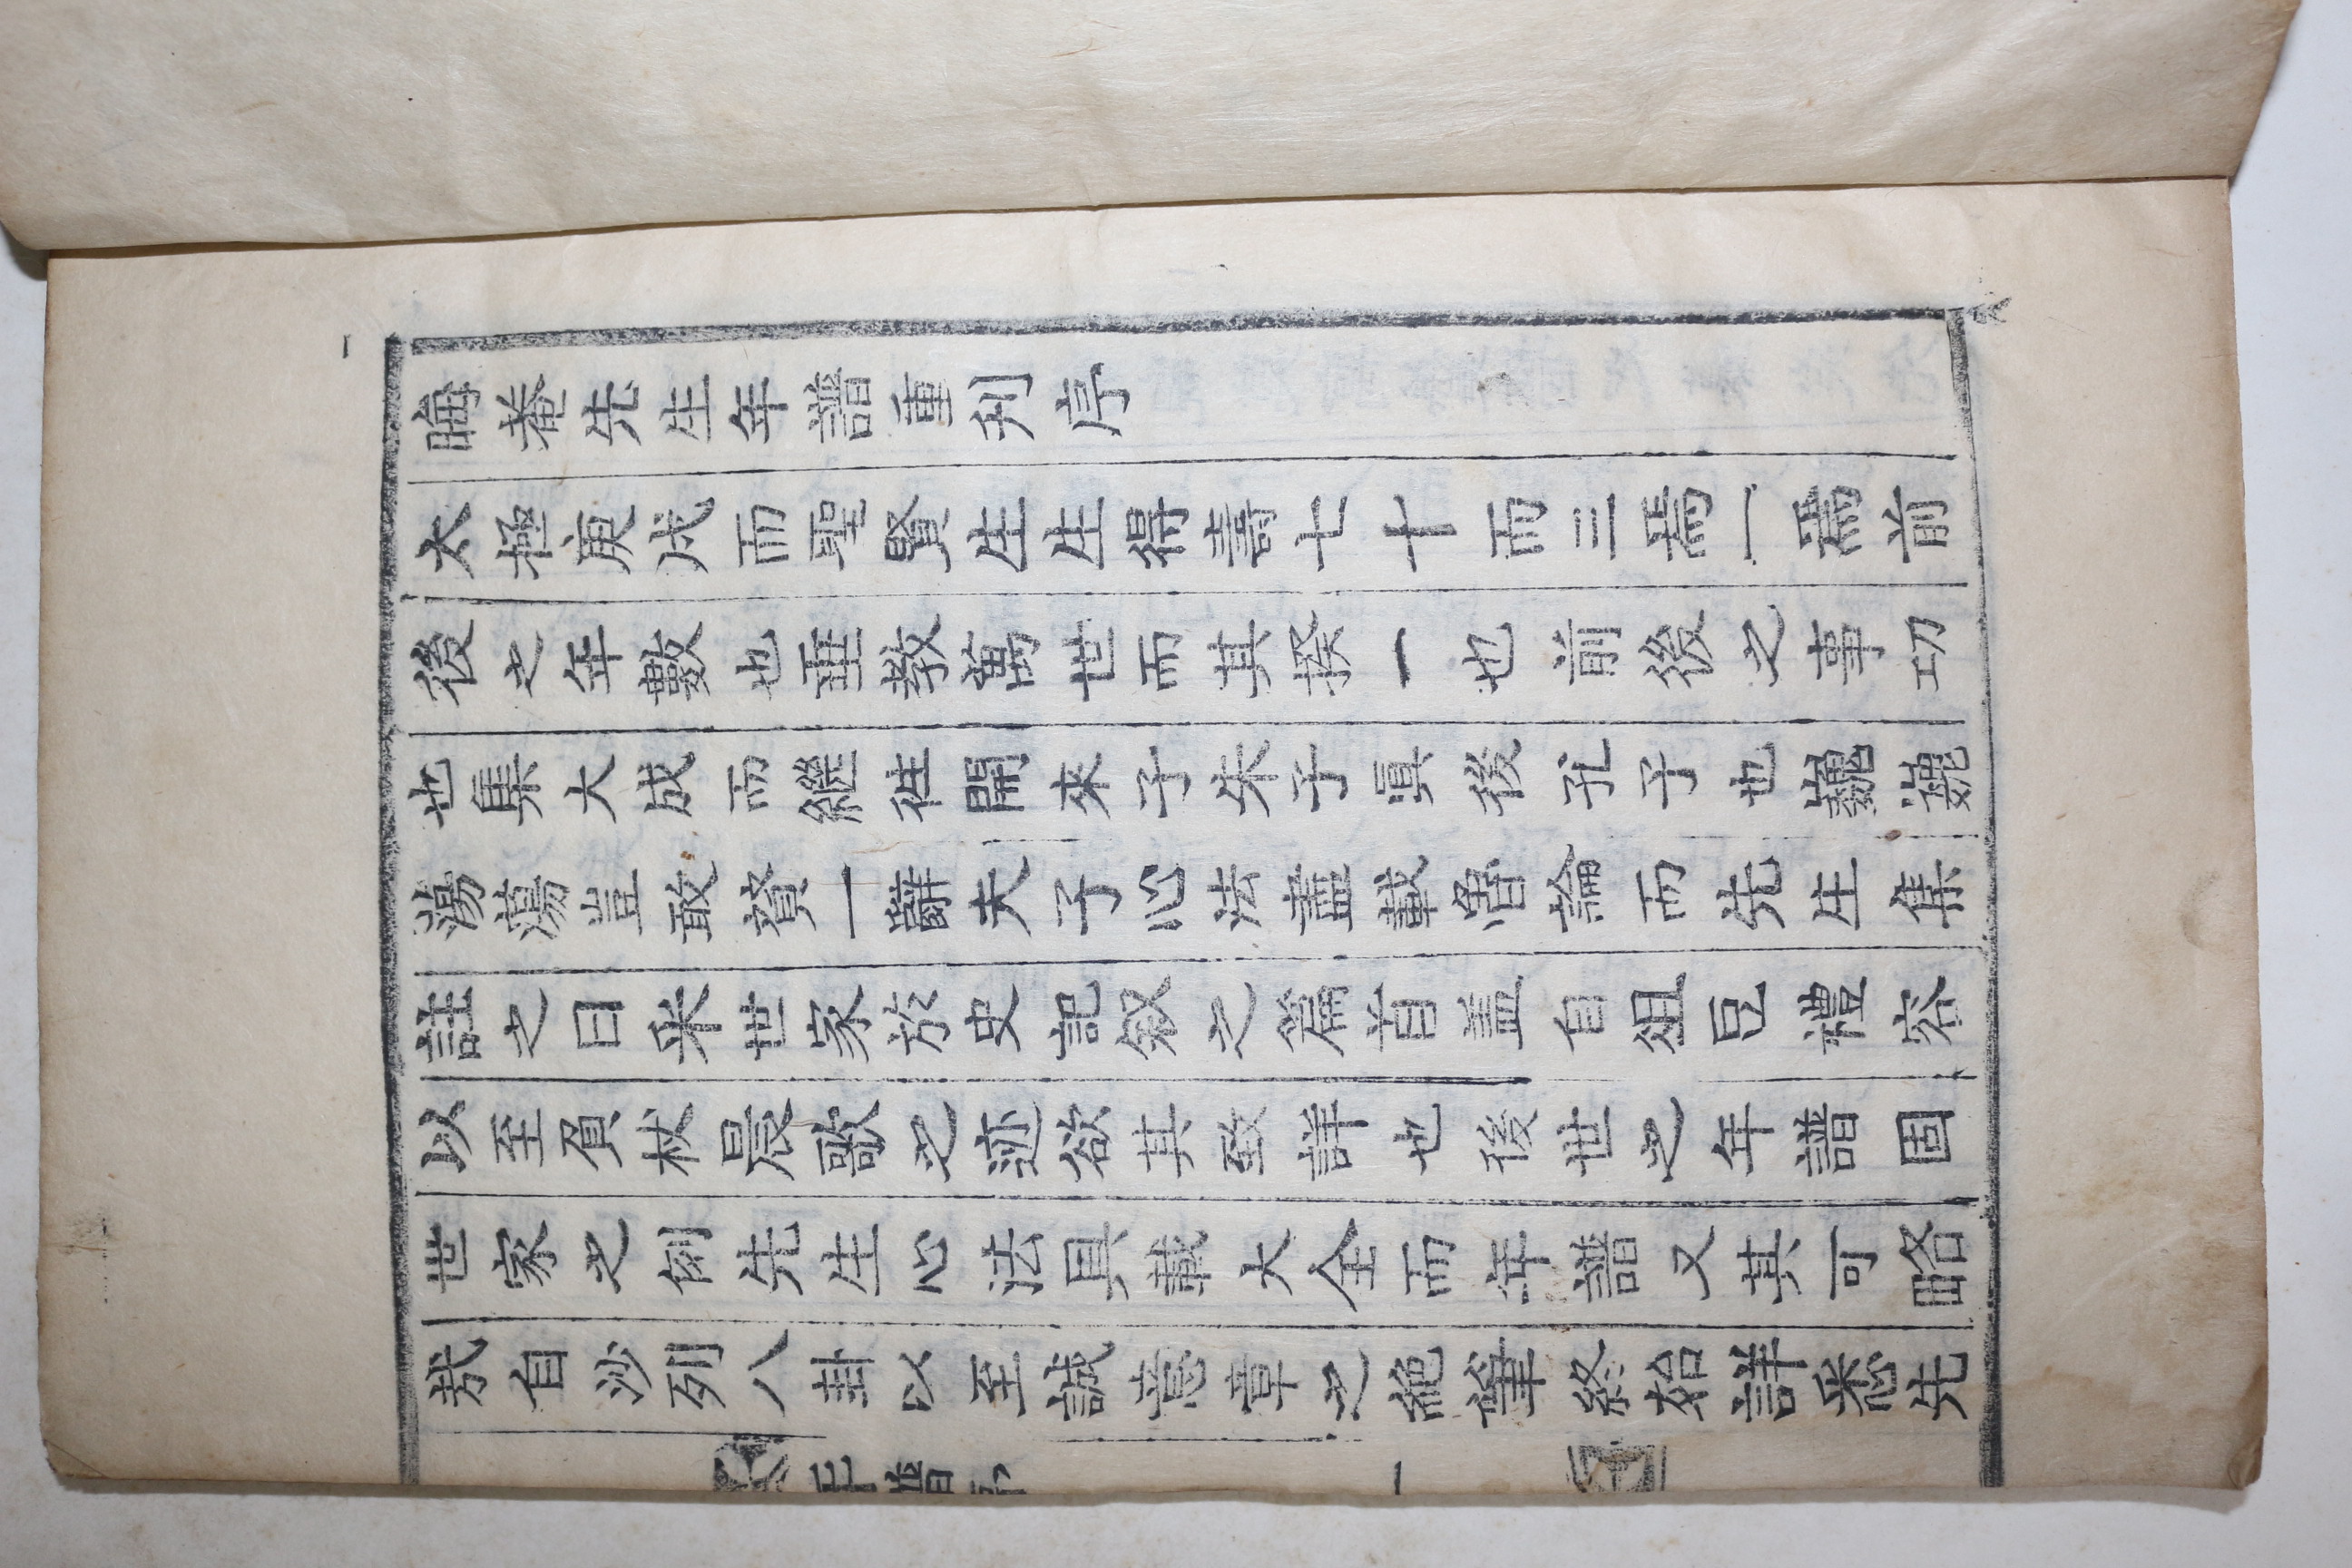 晦菴先生年譜重刊序
太極庚戌而聖賢生生得壽七十而三焉一爲前
後之年數也垂教萬世而其揆一也前後之事功
也集大成而繼徃開來子朱子眞後孔子也巍巍
蕩蕩豈敢贊一辭夫子心法盡載魯論而先生集
註之日采世家於史記叙之篇首盖自俎豆禮容
以至負杖晨歌之迹欲其致詳也後世之年譜固
世家之例先生心法具載大全而年譜又其可略
㢤自沙列八卦以至誠意章之絶筆終始詳悉先
年譜序
一